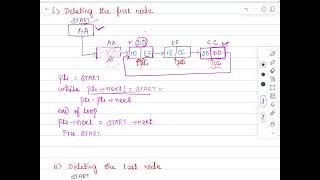 i) Deleting the first node
START
AA
AA EE CC
10 EE 15 CC 20 DD
ptr = START
while ptr → next != START
ptr = ptr → next
end of loop
ptr → next = START → next
Free START.
ii) Deleting the last node
START